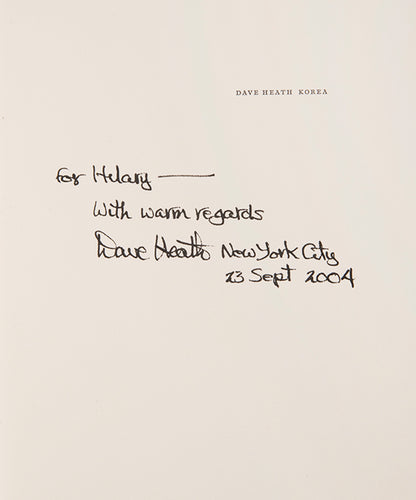 DAVE HEATH KOREA
For Hilary —
With warm regards
Dave Heath New York City
23 Sept 2004